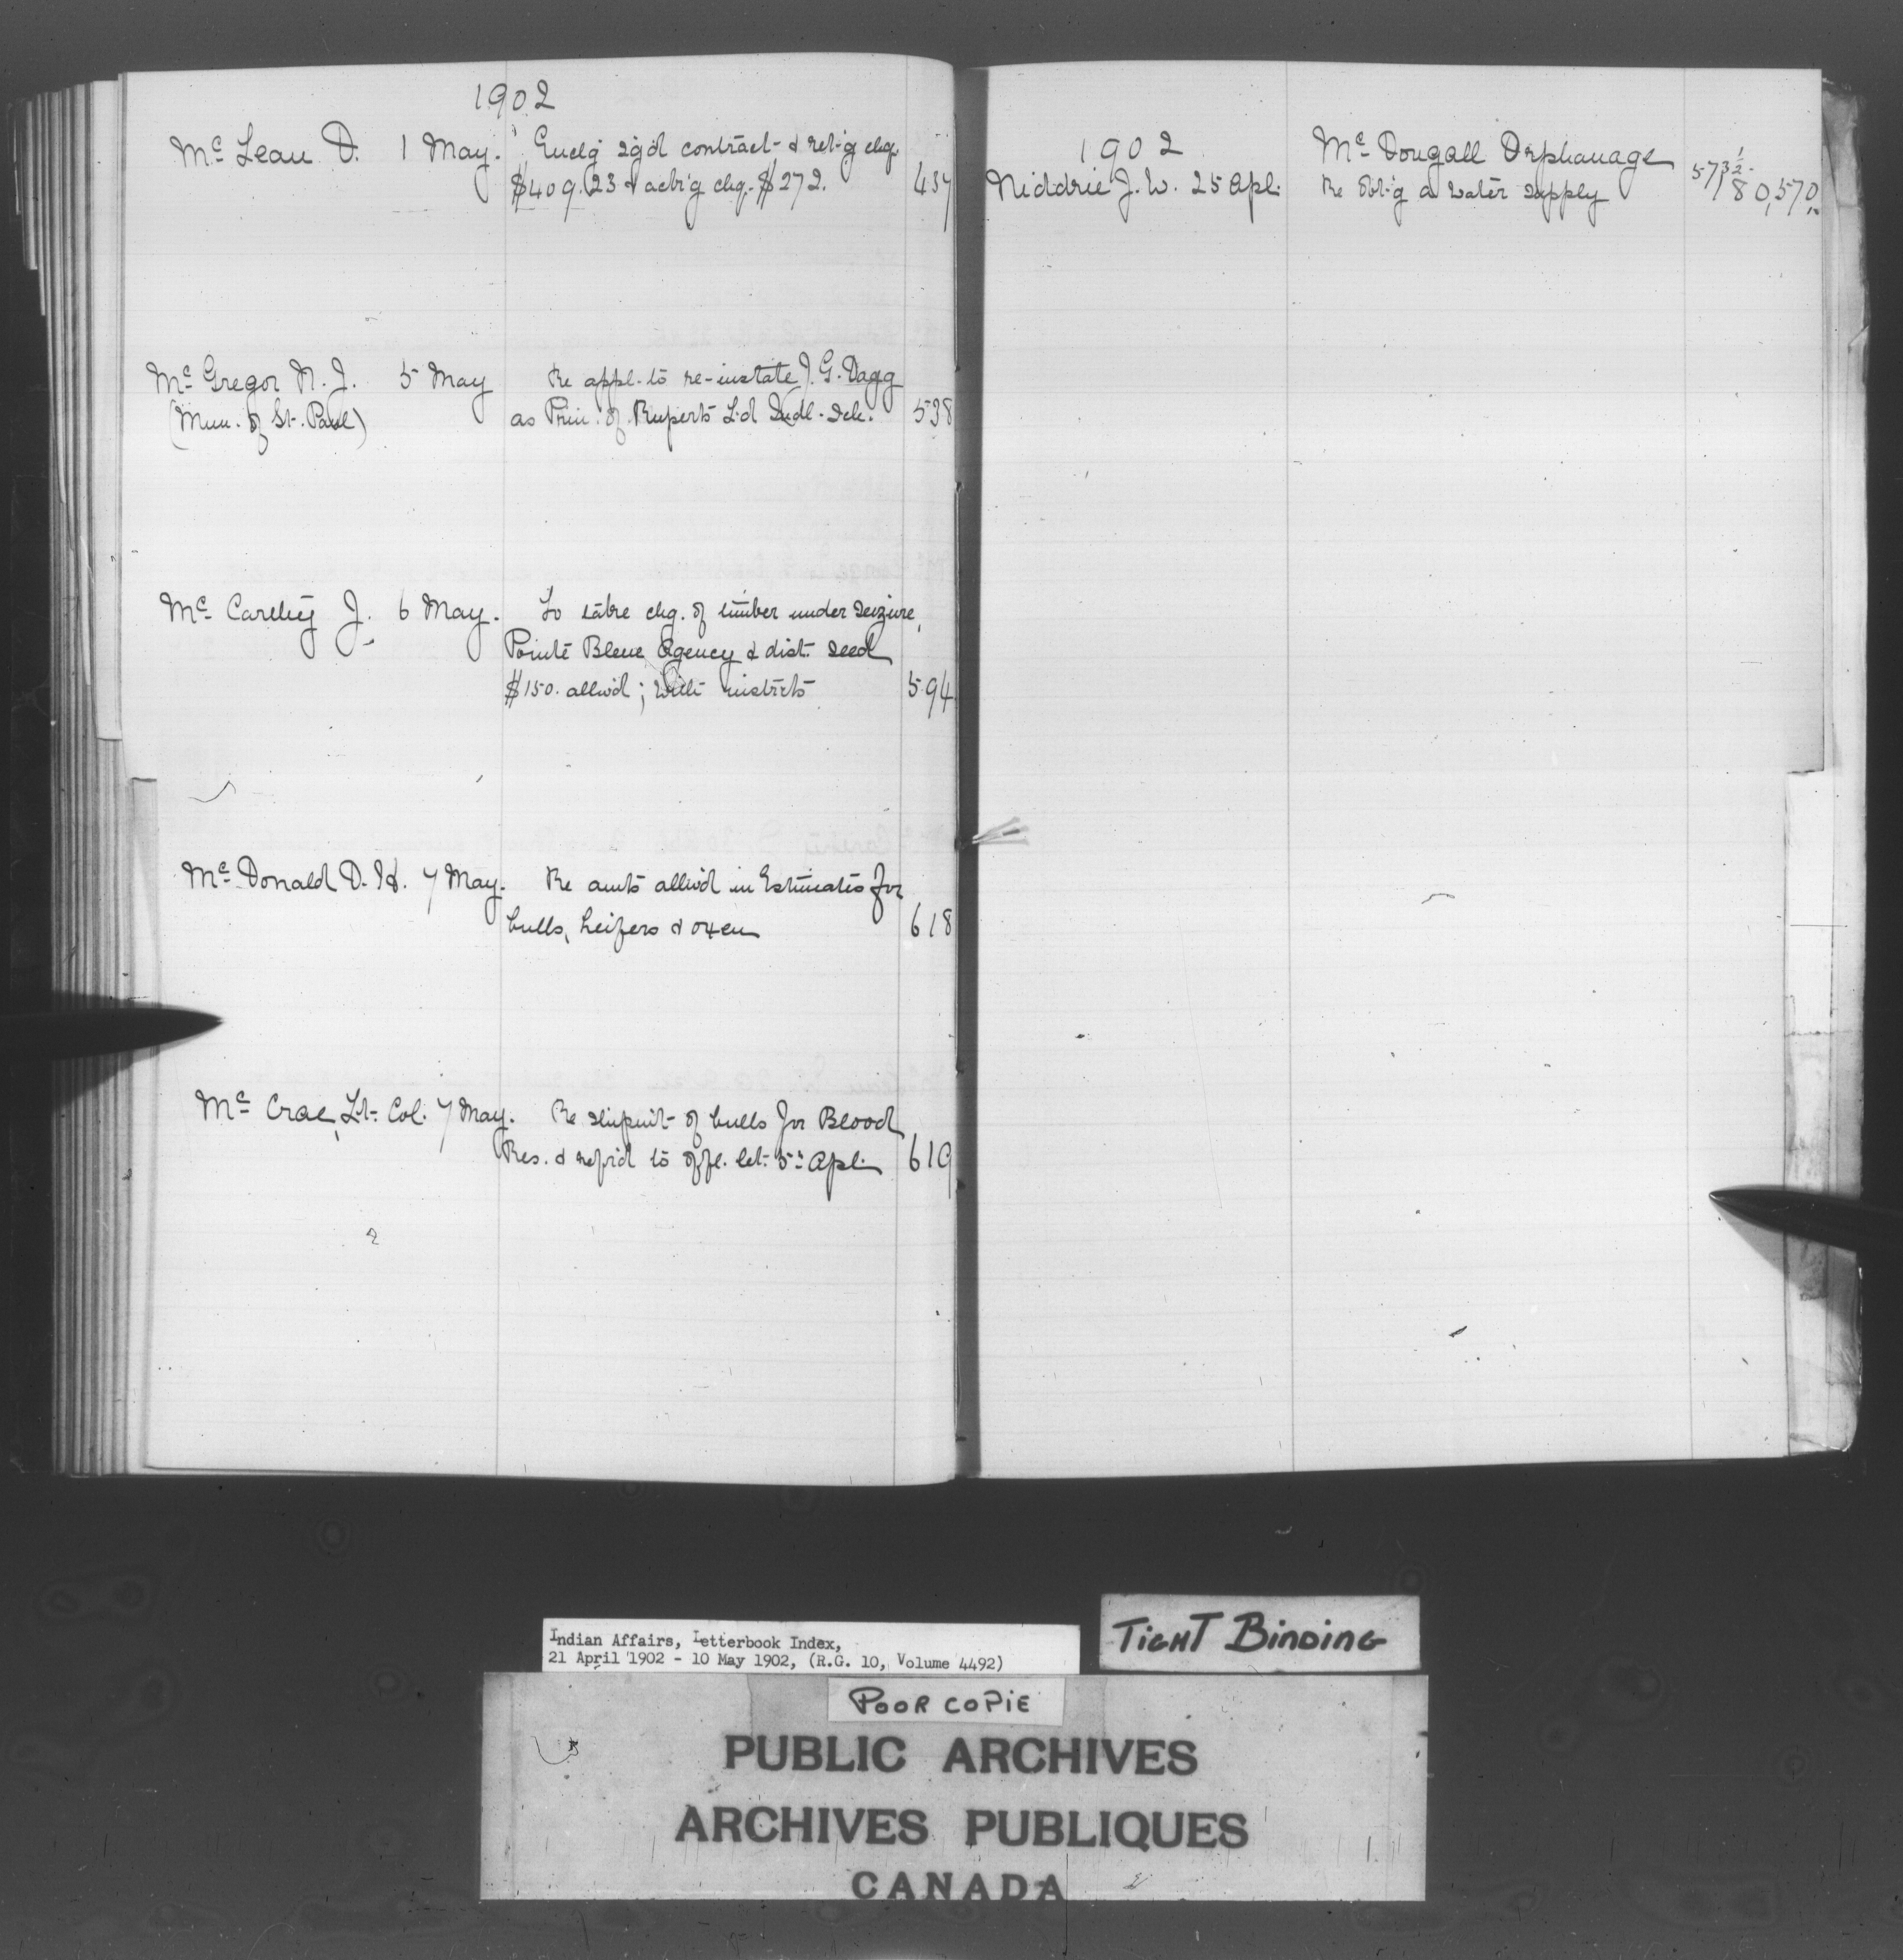 1902
Mc Lean D. 1 May. Encl'g sg'd contract & ret'g chq.
$409.23 & ack'g chq. $272. 437
Mc Gregor N. J. 5 May Re appl. to re-instate J. G. Dagg
(Mun. of St. Paul) as Prin. of Ruperts L'd Indl. Sch. 538
Mc Carthy J. 6 May. To take chg. of timber under seizure,
Pointe Bleue Agency & dist. seed
$150. allw'd; with instrcts 594
Mc Donald D. H. 7 May. Re amts allw'd in Estimates for
bulls, heifers & oxen 618
Mc Crae, Lt. Col. 7 May. Re shipm't of bulls for Blood
Res. & refer'd to offl. let. 5th Apl. 619
1902 Mc Dougall Orphanage
Niddrie J. W. 25 Apl. Re obt'g a water supply 57, 80, 570
Indian Affairs, Letterbook Index,
21 April 1902 - 10 May 1902, (R.G. 10, Volume 4492)
TIGHT BINDING
POOR COPIE
PUBLIC ARCHIVES
ARCHIVES PUBLIQUES
CANADA